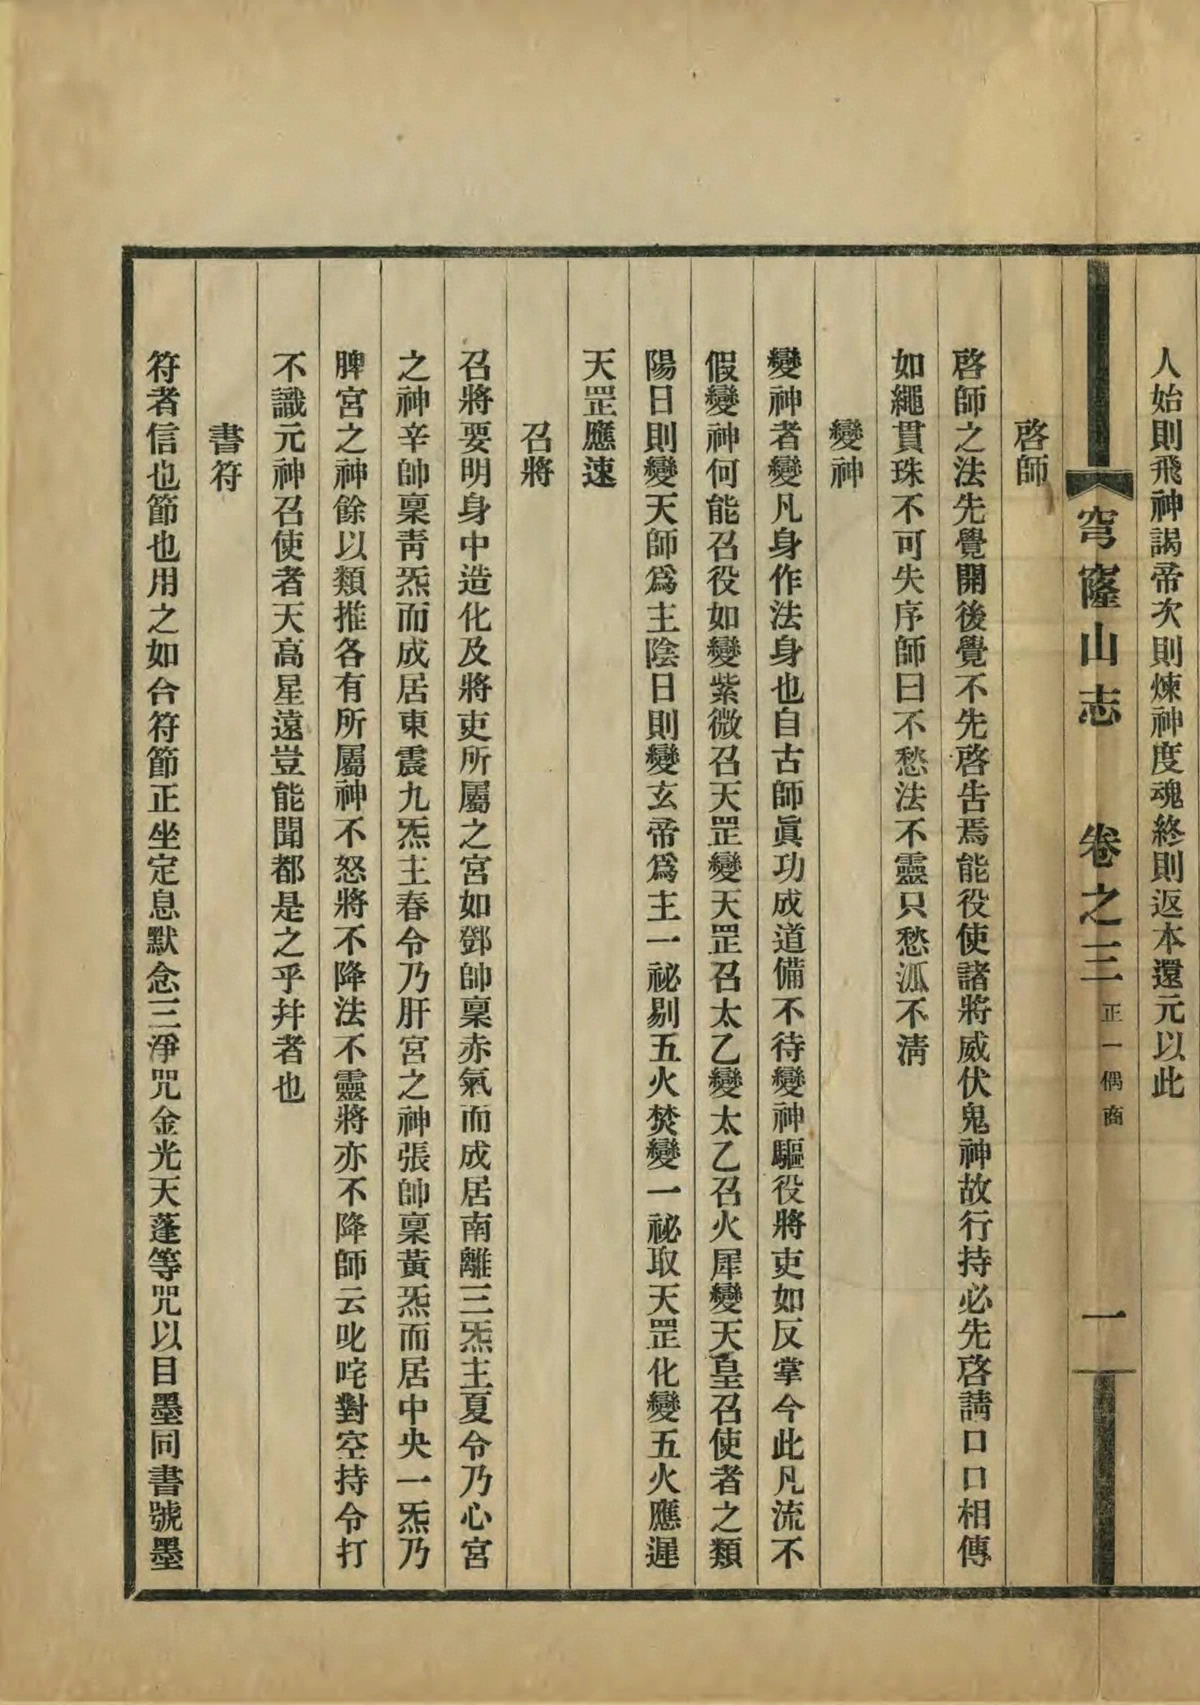 人始則飛神謁帝次則煉神度魂終則返本還元以此
穹窿山志　卷之三　正一偶商　一
啓師
啓師之法先覺開後覺不先啓告焉能役使諸將威伏鬼神故行持必先啓請口口相傳
如繩貫珠不可失序師曰不愁法不靈只愁派不清
變神
變神者變凡身作法身也自古師眞功成道備不待變神驅役將吏如反掌今此凡流不
假變神何能召役如變紫微召天罡變天罡召太乙變太乙召火犀變天皇召使者之類
陽日則變天師爲主陰日則變玄帝爲主一祕剔五火焚變一祕取天罡化變五火應遲
天罡應速
召將
召將要明身中造化及將吏所屬之宮如鄧帥稟赤氣而成居南離三炁主夏令乃心宮
之神辛帥稟靑炁而成居東震九炁主春令乃肝宮之神張帥稟黃炁而居中央一炁乃
脾宮之神餘以類推各有所屬神不怒將不降法不靈將亦不降師云叱咤對空持令打
不識元神召使者天高星遠豈能聞都是之乎幷者也
書符
符者信也節也用之如合符節正坐定息默念三淨咒金光天蓬等咒以目墨同書號墨